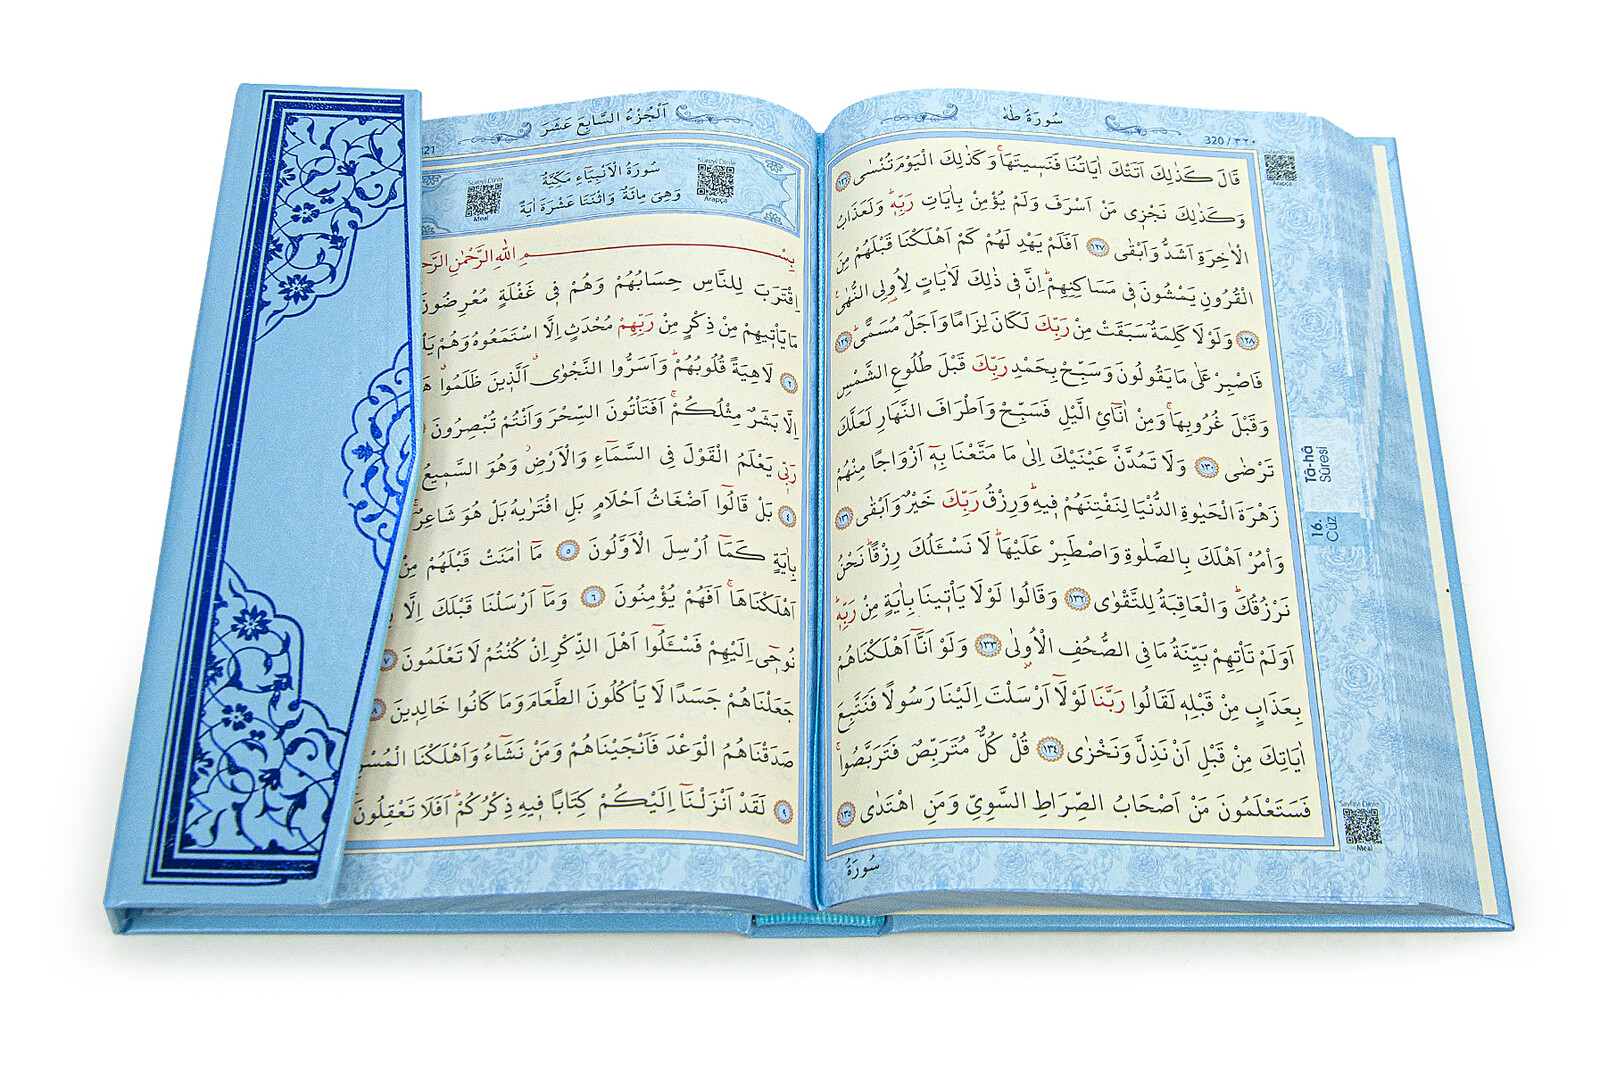 سُورَةُ طٰهٰ
320 / ٣٢٠
قَالَ كَذٰلِكَ اَتَتْكَ اٰيَاتُنَا فَنَس۪يتَهَاۚ وَكَذٰلِكَ الْيَوْمَ تُنْسٰى ﴿١٢٦﴾
وَكَذٰلِكَ نَجْز۪ي مَنْ اَسْرَفَ وَلَمْ يُؤْمِنْ بِاٰيَاتِ رَبِّه۪ۜ وَلَعَذَابُ
الْاٰخِرَةِ اَشَدُّ وَاَبْقٰى ﴿١٢٧﴾ اَفَلَمْ يَهْدِ لَهُمْ كَمْ اَهْلَكْنَا قَبْلَهُمْ مِنَ
الْقُرُونِ يَمْشُونَ ف۪ي مَسَاكِنِهِمْۜ اِنَّ ف۪ي ذٰلِكَ لَاٰيَاتٍ لِاُو۬لِي النُّهٰى۟
﴿١٢٨﴾ وَلَوْلَا كَلِمَةٌ سَبَقَتْ مِنْ رَبِّكَ لَكَانَ لِزَامًا وَاَجَلٌ مُسَمًّىۜ ﴿١٢٩﴾
فَاصْبِرْ عَلٰى مَا يَقُولُونَ وَسَبِّحْ بِحَمْدِ رَبِّكَ قَبْلَ طُلُوعِ الشَّمْسِ
وَقَبْلَ غُرُوبِهَاۚ وَمِنْ اٰنَٓائِ الَّيْلِ فَسَبِّحْ وَاَطْرَافَ النَّهَارِ لَعَلَّكَ
تَرْضٰى ﴿١٣٠﴾ وَلَا تَمُدَّنَّ عَيْنَيْكَ اِلٰى مَا مَتَّعْنَا بِه۪ٓ اَزْوَاجًا مِنْهُمْ
زَهْرَةَ الْحَيٰوةِ الدُّنْيَا لِنَفْتِنَهُمْ ف۪يهِۜ وَرِزْقُ رَبِّكَ خَيْرٌ وَاَبْقٰى ﴿١٣١﴾
وَأْمُرْ اَهْلَكَ بِالصَّلٰوةِ وَاصْطَبِرْ عَلَيْهَاۜ لَا نَسْـَٔلُكَ رِزْقًاۜ نَحْنُ
نَرْزُقُكَۜ وَالْعَاقِبَةُ لِلتَّقْوٰى ﴿١٣٢﴾ وَقَالُوا لَوْلَا يَأْت۪ينَا بِاٰيَةٍ مِنْ رَبِّه۪ۜ
اَوَلَمْ تَأْتِهِمْ بَيِّنَةُ مَا فِي الصُّحُفِ الْاُو۫لٰى ﴿١٣٣﴾ وَلَوْ اَنَّٓا اَهْلَكْنَاهُمْ
بِعَذَابٍ مِنْ قَبْلِه۪ لَقَالُوا رَبَّنَا لَوْلَٓا اَرْسَلْتَ اِلَيْنَا رَسُولًا فَنَتَّبِعَ
اٰيَاتِكَ مِنْ قَبْلِ اَنْ نَذِلَّ وَنَخْزٰى ﴿١٣٤﴾ قُلْ كُلٌّ مُتَرَبِّصٌ فَتَرَبَّصُواۚ
فَسَتَعْلَمُونَ مَنْ اَصْحَابُ الصِّرَاطِ السَّوِيِّ وَمَنِ اهْتَدٰى ﴿١٣٥﴾
سُورَةُ
Arapça
Tâ-hâ
Sûresi
16.
Cüz
Sayfayı Dinle
Meal
اَلْجُزْءُ السَّابِعَ عَشَرَ
321
سُورَةُ الْاَنْبِيَٓاءِ مَكِّيَّةٌ
وَهِيَ مِائَةٌ وَاثْنَتَا عَشْرَةَ اٰيَةً
Sureyi Dinle
Arapça
Sureyi Dinle
Meal
بِسْمِ اللّٰهِ الرَّحْمٰنِ
اِقْتَرَبَ لِلنَّاسِ حِسَابُهُمْ وَهُمْ ف۪ي غَفْلَةٍ مُعْرِضُونَ
مَا يَأْت۪يهِمْ مِنْ ذِكْرٍ مِنْ رَبِّهِمْ مُحْدَثٍ اِلَّا اسْتَمَعُوهُ وَهُمْ
﴿٢﴾ لَاهِيَةً قُلُوبُهُمْۜ وَاَسَرُّوا النَّجْوٰىۗ اَلَّذ۪ينَ ظَلَمُواۗ
اِلَّا بَشَرٌ مِثْلُكُمْۚ اَفَتَأْتُونَ السِّحْرَ وَاَنْتُمْ تُبْصِرُونَ
رَبّ۪ي يَعْلَمُ الْقَوْلَ فِي السَّمَٓاءِ وَالْاَرْضِۘ وَهُوَ السَّم۪يعُ
﴿٤﴾ بَلْ قَالُٓوا اَضْغَاثُ اَحْلَامٍ بَلِ افْتَرٰيهُ بَلْ هُوَ شَاعِرٌۚ
بِاٰيَةٍ كَمَٓا اُرْسِلَ الْاَوَّلُونَ ﴿٥﴾ مَٓا اٰمَنَتْ قَبْلَهُمْ مِنْ
اَهْلَكْنَاهَاۚ اَفَهُمْ يُؤْمِنُونَ ﴿٦﴾ وَمَٓا اَرْسَلْنَا قَبْلَكَ اِلَّا
نُوح۪ٓي اِلَيْهِمْ فَسْـَٔلُٓوا اَهْلَ الذِّكْرِ اِنْ كُنْتُمْ لَا تَعْلَمُونَ ﴿٧﴾
جَعَلْنَاهُمْ جَسَدًا لَا يَأْكُلُونَ الطَّعَامَ وَمَا كَانُوا خَالِد۪ينَ ﴿٨﴾
صَدَقْنَاهُمُ الْوَعْدَ فَاَنْجَيْنَاهُمْ وَمَنْ نَشَٓاءُ وَاَهْلَكْنَا
﴿٩﴾ لَقَدْ اَنْزَلْنَٓا اِلَيْكُمْ كِتَابًا ف۪يهِ ذِكْرُكُمْۜ اَفَلَا تَعْقِلُونَ